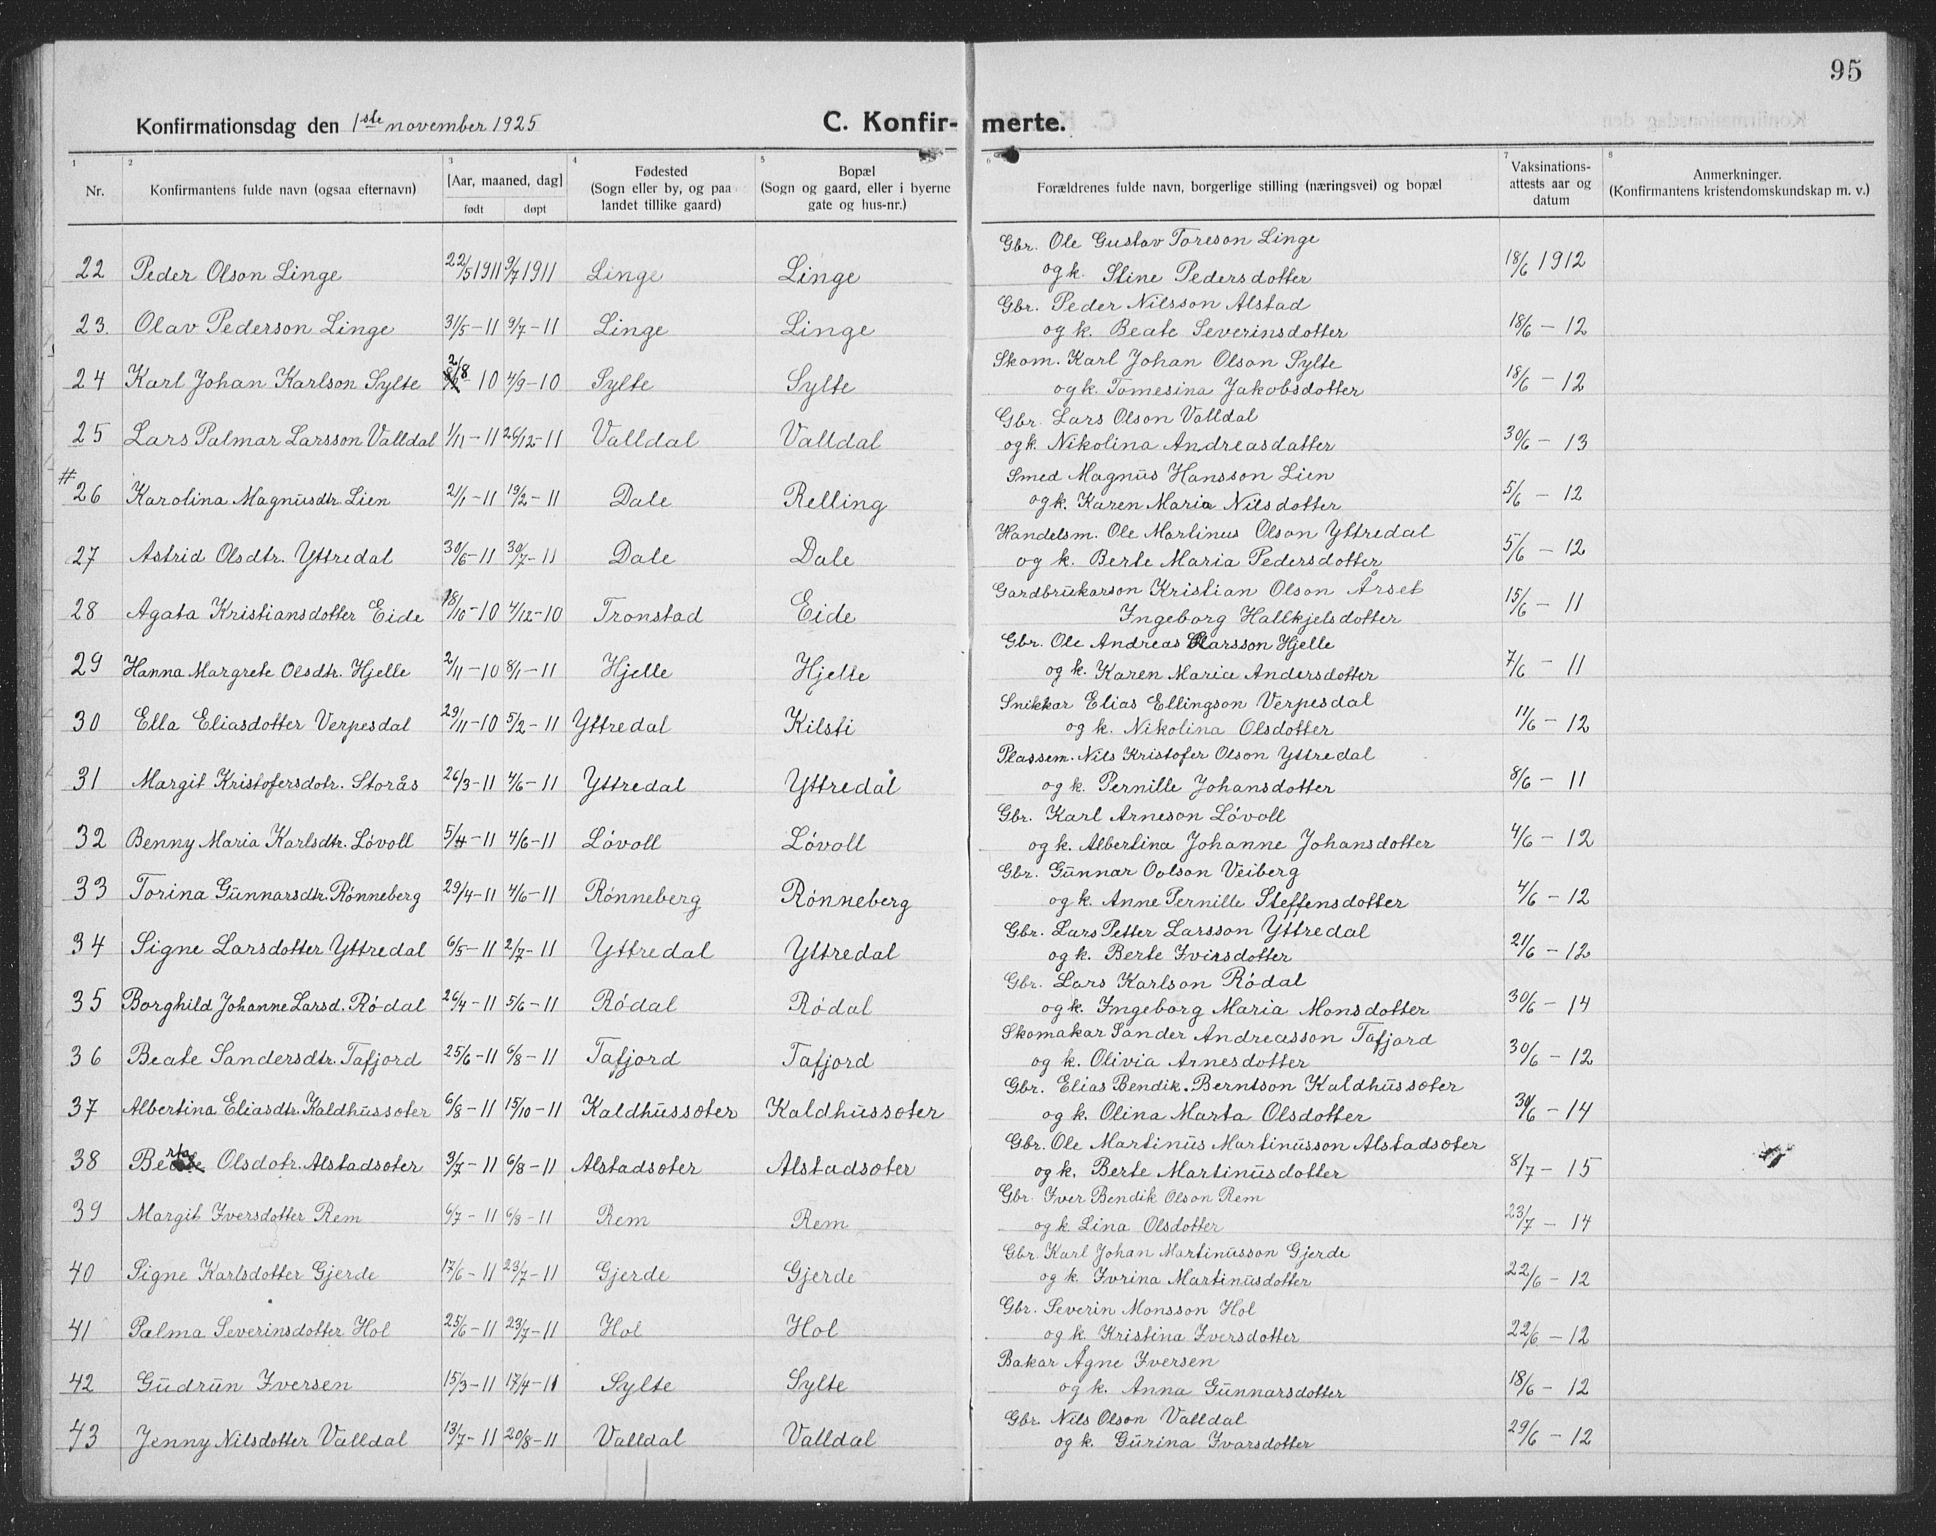 95
Konfirmationsdag den 1ste november 1925 C. Konfir- merte.
1 2 3 4 5 6 7 8
Nr. Konfirmantens fulde navn (ogsaa efternavn) [Aar, maaned, dag] født døpt Fødested (Sogn eller by, og paa landet tillike gaard) Bopæl (Sogn og gaard, eller i byerne gate og hus-nr.) Forældrenes fulde navn, borgerlige stilling (næringsvei) og bopæl Vaksinations-attests aar og datum Anmerkninger. (Konfirmantens kristendomskundskap m. v.)
22 Peder Olson Linge 22/5 1911 9/7 1911 Linge Linge Gbr. Ole Gustav Toreson Linge
og k. Stine Pedersdotter 18/6 1912
23. Olav Pederson Linge 31/5 - 11 9/7 - 11 Linge Linge Gbr. Peder Nilsson Alstad
og k. Beate Severinsdotter 18/6 - 12
24 Karl Johan Karlson Sylte 2/8 - 10 4/9 - 10 Sylte Sylte Skom. Karl Johan Olson Sylte
og k. Tomesina Jakobsdotter 18/6 - 12
25 Lars Palmar Larsson Valldal 1/11 - 11 26/12 - 11 Valldal Valldal Gbr. Lars Olson Valldal
og k. Nikolina Andreasdatter 30/6 - 13
# 26 Karolina Magnusdtr. Lien 2/1 - 11 19/2 - 11 Dale Relling Smed Magnus Hansson Lien
og k. Karen Maria Nilsdotter 5/6 - 12
27 Astrid Olsdtr. Yttredal 30/6 - 11 30/7 - 11 Dale Dale Handelsm. Ole Martinus Olson Yttredal
og k. Berte Maria Pedersdotter 5/6 - 12
28 Agata Kristiansdotter Eide 18/10 - 10 4/12 - 10 Tronstad Eide Gardbrukarson Kristian Olson Årset
Ingeborg Hallkjelsdotter 15/6 - 11
29 Hanna Margrete Olsdtr. Hjelle 2/11 - 10 8/1 - 11 Hjelle Hjelle Gbr. Ole Andreas Larsson Hjelle
og k. Karen Maria Andersdotter 7/6 - 11
30 Ella Eliasdotter Verpesdal 29/11 - 10 5/2 - 11 Yttredal Kilsti Snikkar Elias Ellingson Verpesdal
og k. Nikolina Olsdotter 11/6 - 12
31 Margit Kristofersdotr. Storås 26/3 - 11 4/6 - 11 Yttredal Yttredal Plassem. Nils Kristofer Olson Yttredal
og k. Pernille Johansdotter 8/6 - 11
32 Benny Maria Karlsdtr. Lóvoll 5/4 - 11 4/6 - 11 Lóvoll Lóvoll Gbr. Karl Arneson Lóvoll
og k. Albertina Johanne Johansdotter 4/6 - 12
33 Torina Gunnarsdtr. Rónneberg 29/4 - 11 4/6 - 11 Rónneberg Rónneberg Gbr. Gunnar Oolson Veiberg
og k. Anne Pernille Steffensdotter 4/6 - 12
34 Signe Larsdotter Yttredal 6/5 - 11 2/7 - 11 Yttredal Yttredal Gbr. Lars Petter Larsson Yttredal
og k. Berte Ivirsdotter 21/6 - 12
35 Borghild Johanne Larsd. Ródal 26/4 - 11 5/6 - 11 Ródal Ródal Gbr. Lars Karlson Ródal
og k. Ingeborg Maria Monsdotter 30/6 - 14
36 Beate Sandersdtr. Tafjord 25/6 - 11 6/8 - 11 Tafjord Tafjord Skomakar Sander Andreasson Tafjord
og k. Olivia Arnesdotter 30/6 - 12
37 Albertina Eliasdtr. Kaldhussæter 6/8 - 11 15/10 - 11 Kaldhussæter Kaldhussæter Gbr. Elias Bendik. Berntson Kaldhussæter
og k. Olina Marta Olsdotter 30/6 - 14
38 Berta Olsdotr. Alstadsæter 3/7 - 11 6/8 - 11 Alstadsæter Alstadsæter Gbr. Ole Martinus Martinusson Alstadsæter
og k. Berte Martinusdotter 8/7 - 15
39 Margit Iversdotter Rem 6/7 - 11 6/8 - 11 Rem Rem Gbr. Iver Bendik Olson Rem
og k. Lina Olsdotter 23/7 - 14
40 Signe Karlsdotter Gjerde 17/6 - 11 23/7 - 11 Gjerde Gjerde Gbr. Karl Johan Martinusson Gjerde
og k. Ivrina Martinusdotter 22/6 - 12
41 Palma Severinsdotter Hol 25/6 - 11 23/7 - 11 Hol Hol Gbr. Severin Monsson Hol
og k. Kristina Iversdotter 22/6 - 12
42 Gudrun Iversen 15/3 - 11 17/4 - 11 Sylte Sylte Bakar Agne Iversen
og k. Anna Gunnarsdotter 18/6 - 12
43 Jenny Nilsdotter Valldal 13/7 - 11 20/8 - 11 Valldal Valldal Gbr. Nils Olson Valldal
og k. Gurina Ivarsdotter 29/6 - 12